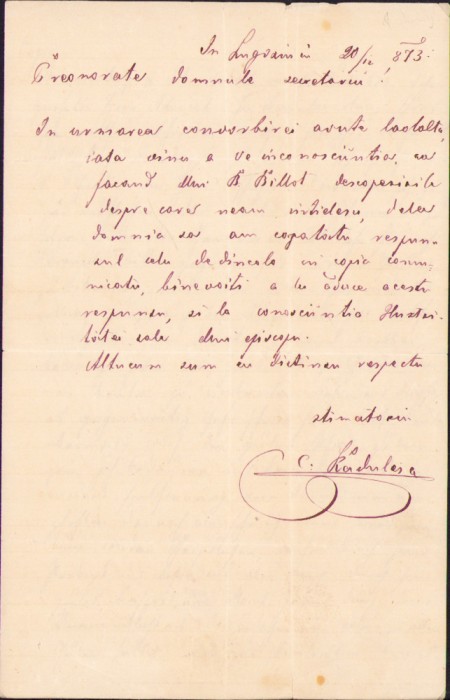 In Lugosiu in 20/12 873.
Preonorate domnule secretariu!
In urmarea convorbirei avute laolalta,
iata vinu a ve inconosciintia, ca
facand dlui B Billot descoperirile
despre care neam intielesu, dela
domnia sa am capatatu respun-
sul celu de dincolo in copia comu-
nicatu, binevoiti a lu aduce acestu
respunsu, si la conosciintia
sale dlui episcopu.
Altucum sum cu distinsu respectu
stimatoriu
C. Radulescu